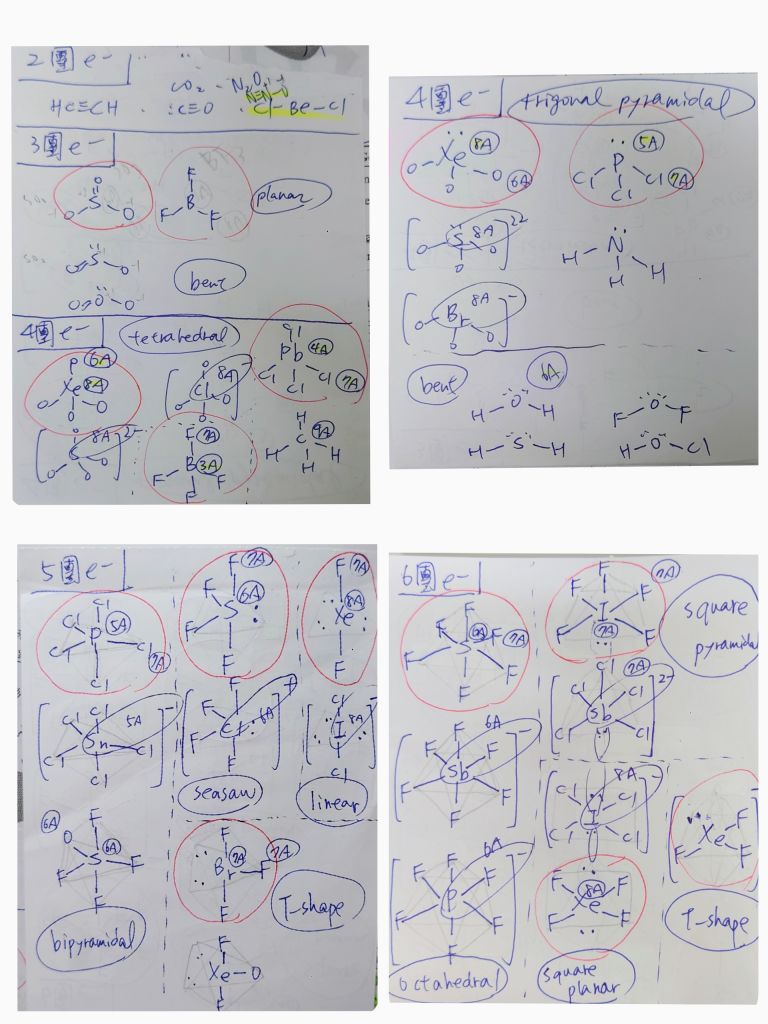 2團e-
CO2 N2O
HC≡CH :C≡O N=N=O Cl-Be-Cl
3團e-
O
O S O
F
F B F
planar
O S O
O O O
bent
4團e-
tetrahedral
6A
Xe 8A
O O O
[Cl 8A]-
O O O
Cl
Pb 4A
Cl Cl Cl 7A
[S 8A]2-
O O O
F 7A
B 3A
F F F
H
C 4A
H H H
4團e-
trigonal pyramidal
Xe 8A
O O O 6A
P 5A
Cl Cl Cl 7A
[S 8A]2-
O O O
N
H H H
[Br 8A]-
O O O
bent
6A
H O H
F O F
H S H
H O Cl
5團e-
Cl
Cl P 5A
Cl Cl 7A
Cl
F 7A
F 6A
S
F
F
F 7A
Xe 8A
F
Cl 5A
Cl Sn Cl
Cl
Cl
F
F Cl 6A
F
F
Cl
I 8A
Cl
seasaw
linear
6A F
O S 6A
F F
F
F
Br 7A F 7A
F
bipyramidal
T-shape
F
Xe-O
F
6團e-
F
F S 6A F 7A
F F
F
F 7A
F F
I
F 7A F
square
pyramidal
Cl 7A
Cl Cl
Sb
Cl Cl
2-
F 6A
F F
Sb
F F
F
8A
Cl Cl
I
Cl Cl
Xe F
F F
F 6A
F F
P
F F
F
F 8A F
Xe
F F
T-shape
octahedral
square
planar